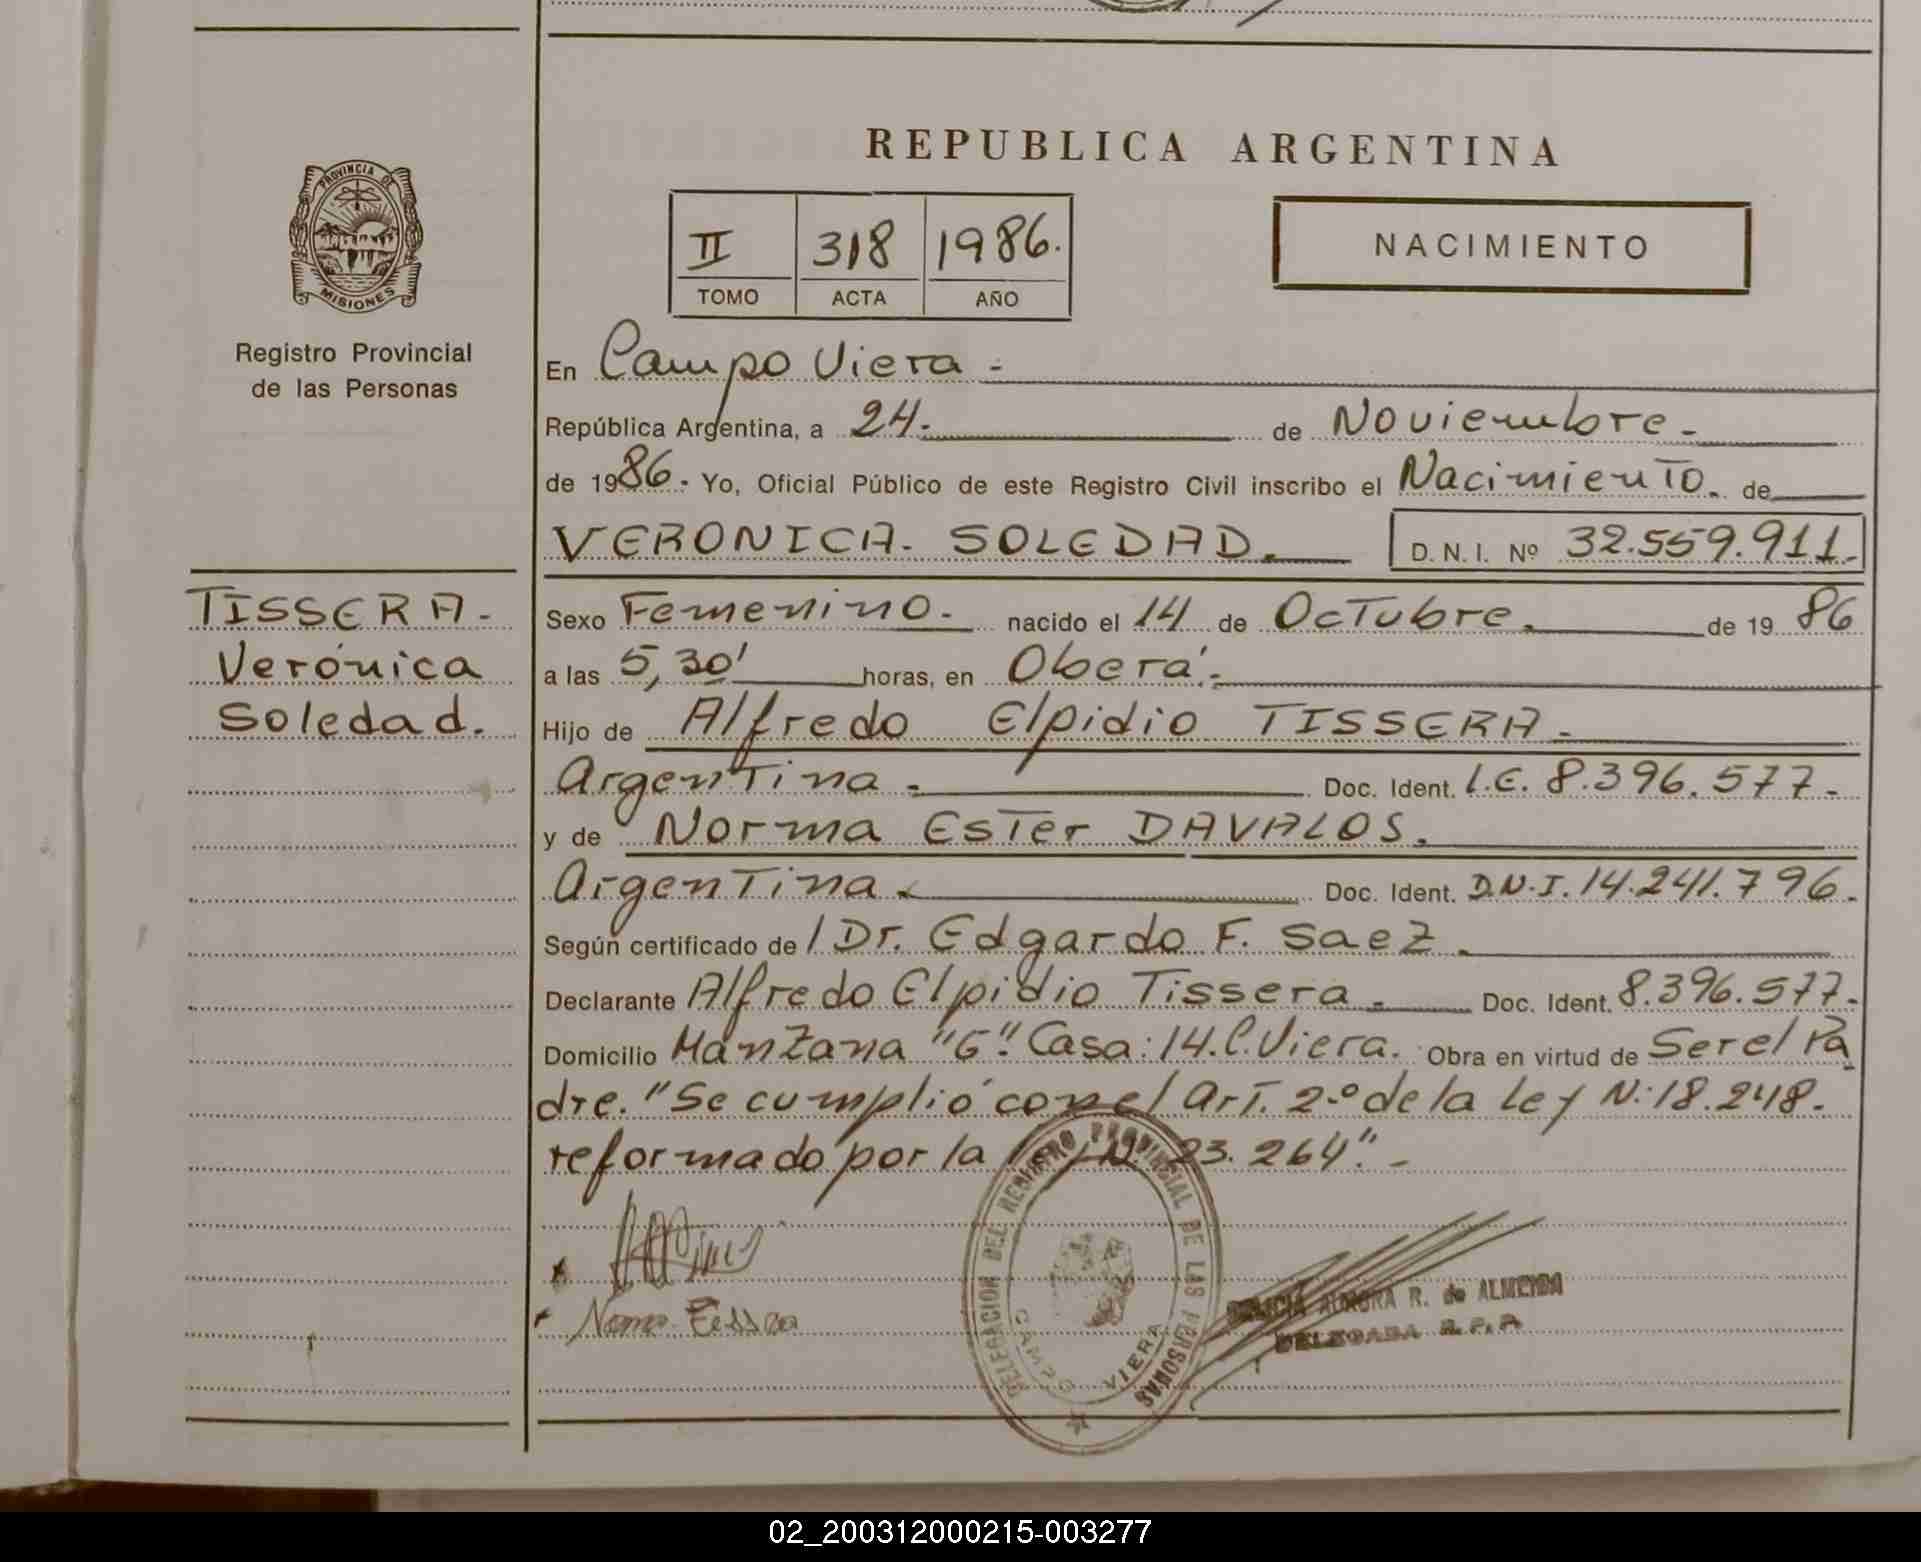 PROVINCIA DE
MISIONES
Registro Provincial
de las Personas
TISSERA -
Verónica
Soledad.
REPUBLICA ARGENTINA
II 318 1986.
TOMO ACTA AÑO
NACIMIENTO
En Campo Viera -
República Argentina, a 24. de Noviembre -
de 1986. Yo, Oficial Público de este Registro Civil inscribo el Nacimiento. de
VERONICA. SOLEDAD. D. N. I. Nº 32.559.911.
Sexo Femenino. nacido el 14 de Octubre. de 19 86
a las 5,30' horas, en Oberá.-
Hijo de Alfredo Elpidio TISSERA -
Argentina - Doc. Ident. L.E. 8.396.577-
y de Norma Ester DAVALOS.
Argentina - Doc. Ident. D.N.I. 14.241.796.
Según certificado de / Dr. Edgardo F. Saez.
Declarante Alfredo Elpidio Tissera - Doc. Ident. 8.396.577.
Domicilio Manzana "G". Casa: 14. C. Viera. Obra en virtud de Ser el Pa
dre. "Se cumplió con el Art. 2º de la Ley N: 18.248.
reformado por la Ley N. 23.264". -
Norma Tissera
DELEGACION DEL REGISTRO PROVINCIAL DE LAS PERSONAS
CAMPO VIERA
R. de ALMEIDA
DELEGADA R.P.P.
02_200312000215-003277